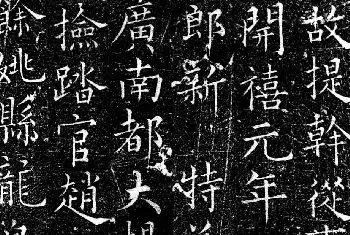 故提幹從
開禧元年
郎新　特
廣南都大提
撿踏官趙
餘姚縣龍